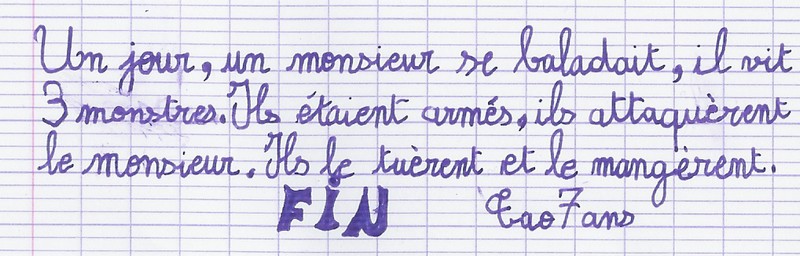 Un jour, un monsieur se baladait, il vit
3 monstres. Ils étaient armés, ils attaquèrent
le monsieur. Ils le tuèrent et le mangèrent.
FIN Eao 7 ans